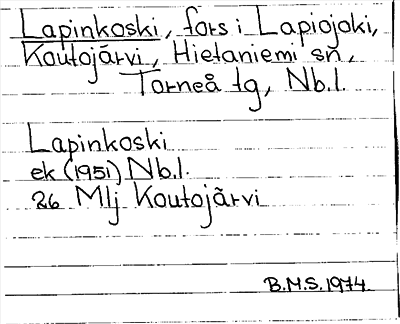 Lapinkoski, fors i Lapiojoki,
Koutojärvi, Hietaniemi sn,
Torneå tg, Nb.l.
Lapinkoski
ek (1951) Nb.l.
26 Mlj Koutojärvi
B.M.S. 1974